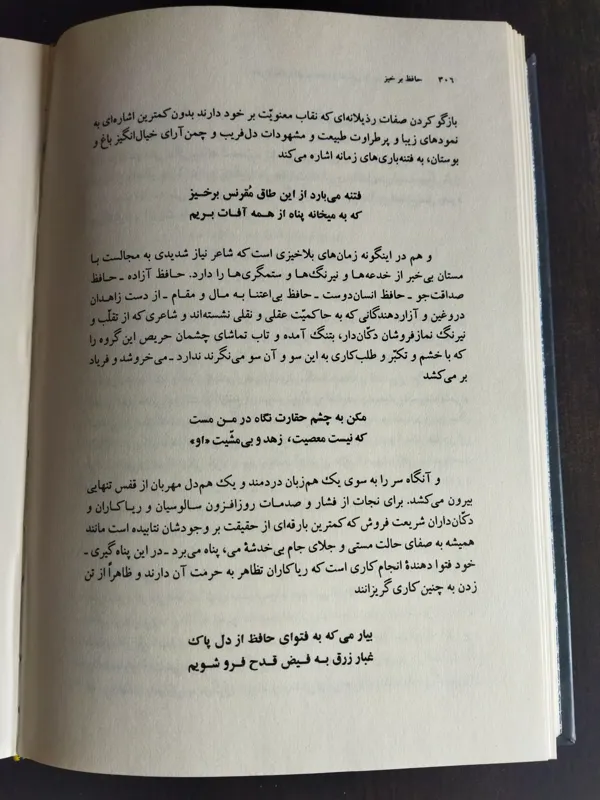 ۳۰۶ حافظ برخیز
بازگو کردن صفات رذیلانه‌ای که نقاب معنویّت بر خود دارند بدون کمترین اشاره‌ای به
نمودهای زیبا و پرطراوت طبیعت و مشهودات دل‌فریب و چمن‌آرای خیال‌انگیز باغ و
بوستان، به فتنه‌باری‌های زمانه اشاره می‌کند
فتنه می‌بارد از این طاق مُقرنس برخیز
که به میخانه پناه از همه آفات بریم
و هم در اینگونه زمان‌های بلاخیزی است که شاعر نیاز شدیدی به مجالست با
مستان بی‌خبر از خدعه‌ها و نیرنگ‌ها و ستمگری‌ها را دارد. حافظ آزاده ـ حافظ
صداقت‌جو ـ حافظ انسان‌دوست ـ حافظ بی‌اعتنا به مال و مقام ـ از دست زاهدان
دروغین و آزاردهندگانی که به حاکمیّت عقلی و نقلی نشسته‌اند و شاعری که از تقلّب و
نیرنگ نمازفروشان دکّان‌دار، بتنگ آمده و تاب تماشای چشمان حریص این‌گروه را
که با خشم و تکبّر و طلب‌کاری به این سو و آن سو می‌نگرند ندارد ـ می‌خروشد و فریاد
بر می‌کشد
مکن به چشم حقارت نگاه در من مست
که نیست معصیت، زهد و بی‌مشّیت «او»
و آنگاه سر را به سوی یک هم‌زبان دردمند و یک هم‌دل مهربان از قفس تنهایی
بیرون می‌کشد. برای نجات از فشار و صدمات روزافزون سالوسیان و ریاکاران و
دکّان‌داران شریعت فروش که کمترین بارقه‌ای از حقیقت بر وجودشان نتابیده است مانند
همیشه به صفای حالت مستی و جلای جام بی‌خدشهٔ می، پناه می‌برد ـ در این پناه‌گیری ـ
خود فتوا دهندهٔ انجام کاری است که ریاکاران تظاهر به حرمت آن دارند و ظاهراً از تن
زدن به چنین کاری گریزانند
بیار می‌که به فتوای حافظ از دل پاک
غبار زرق به فیض قدح فرو شویم